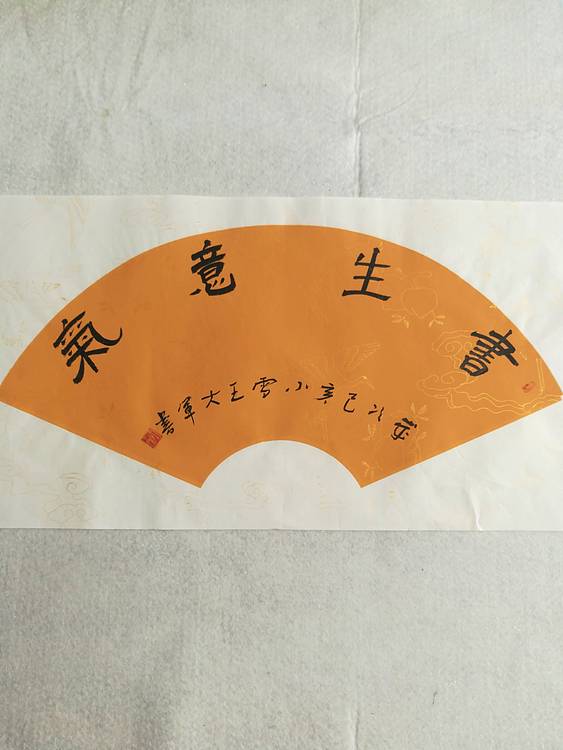 書生意氣
歲次己亥小雪王大軍書